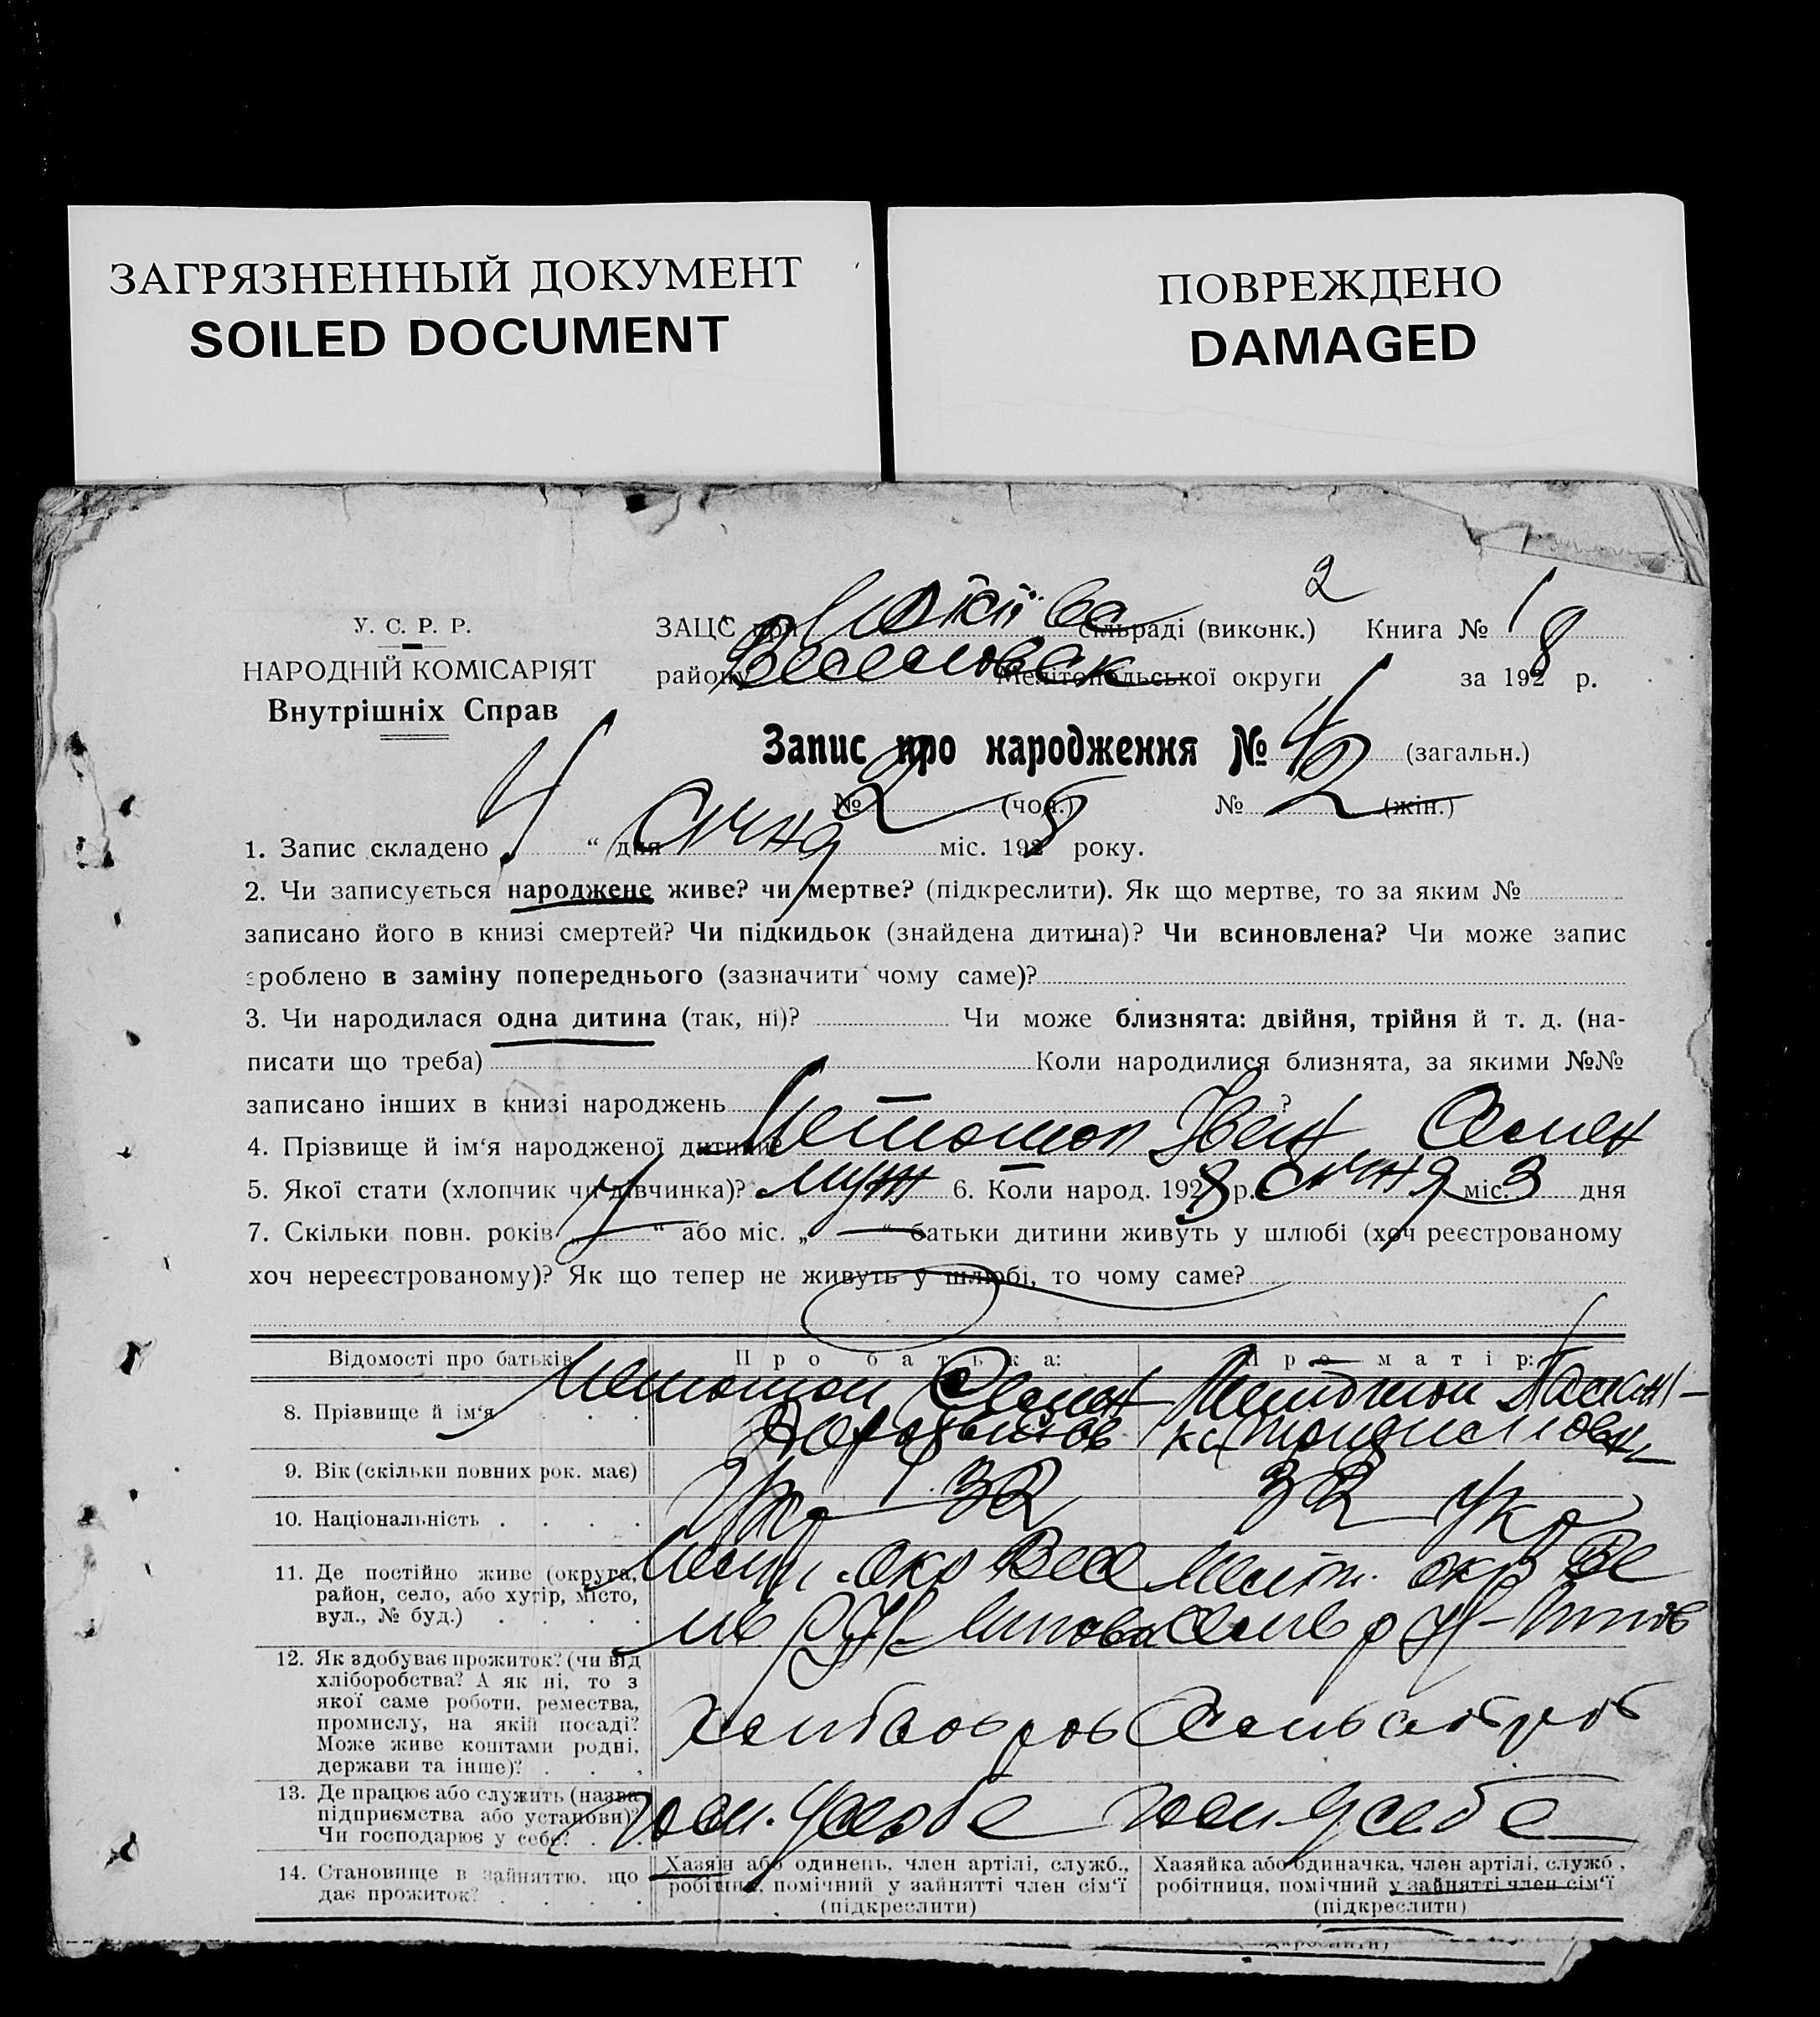 ЗАГРЯЗНЕННЫЙ ДОКУМЕНТ
SOILED DOCUMENT
ПОВРЕЖДЕНО
DAMAGED
2
У. С. Р. Р.
НАРОДНІЙ КОМІСАРІЯТ
Внутрішніх Справ
ЗАЦС при сільраді (виконк.) Книга № 1
району Мелітопільської округи за 1928 р.
Запис про народження № 4 (загальн.)
№ 2 (чол.) № 2 (жін.)
1. Запис складено 4 “ дня Січня міс. 1928 року.
2. Чи записується народжене живе? чи мертве? (підкреслити). Як що мертве, то за яким №
записано його в книзі смертей? Чи підкидьок (знайдена дитина)? Чи всиновлена? Чи може запис
зроблено в заміну попереднього (зазначити чому саме)?
3. Чи народилася одна дитина (так, ні)? Чи може близнята: двійня, трійня й т. д. (на-
писати що треба) Коли народилися близнята, за якими №№
записано інших в книзі народжень ?
4. Прізвище й ім‘я народженої дитини Іван Семен
5. Якої стати (хлопчик чи дівчинка)? муж 6. Коли народ. 1928 р. Січня міс. 3 дня
7. Скільки повн. років „ “ або міс. „ “ батьки дитини живуть у шлюбі (хоч реєстрованому
хоч нереєстрованому)? Як що тепер не живуть у шлюбі, то чому саме?
Відомості про батьків Про батька: Про матір:
8. Прізвище й ім‘я Семен
9. Вік (скільки повних рок. має) 32 32
10. Національність Укр Укр
11. Де постійно живе (округа,
район, село, або хутір, місто,
вул., № буд.) Меліт. окр Весе Меліт. окр Ве
12. Як здобуває прожиток? (чи від
хліборобства? А як ні, то з
якої саме роботи, ремества,
промислу, на якій посаді?
Може живе коштами родні,
держави та інше)?
13. Де працює або служить (назва
підприємства або установи)?
Чи господарює у себе? у себе у себе
14. Становище в зайняттю, що
дає прожиток?
Хазяїн або одинець, член артілі, служб.,
робітник, помічний у зайнятті член сім‘ї
(підкреслити)
Хазяйка або одиначка, член артілі, служб.,
робітниця, помічний у зайнятті член сім‘ї
(підкреслити)